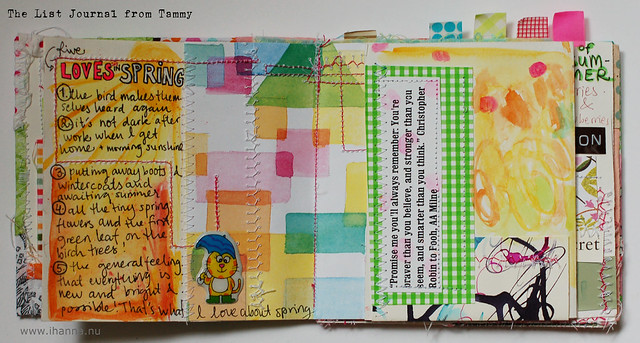 The List Journal from Tammy
five
LOVES in SPRING
1. the bird makes them
selves heard again
2. it's not dark after
work when I get
home + morning sunshine
3. putting away boots &
wintercoats and
awaiting summer
4. all the tiny spring
flowers and the first
green leaf on the
birch trees!
5. the general feeling
that everything is
new and bright &
possible! That's what I love about spring
"Promise me you'll always remember: You're
braver than you believe, and stronger than you
seem, and smarter than you think." Christopher
Robin to Pooh, AA Milne
OF
SUM-
MER
ries
&
ON
ret
www.ihanna.nu